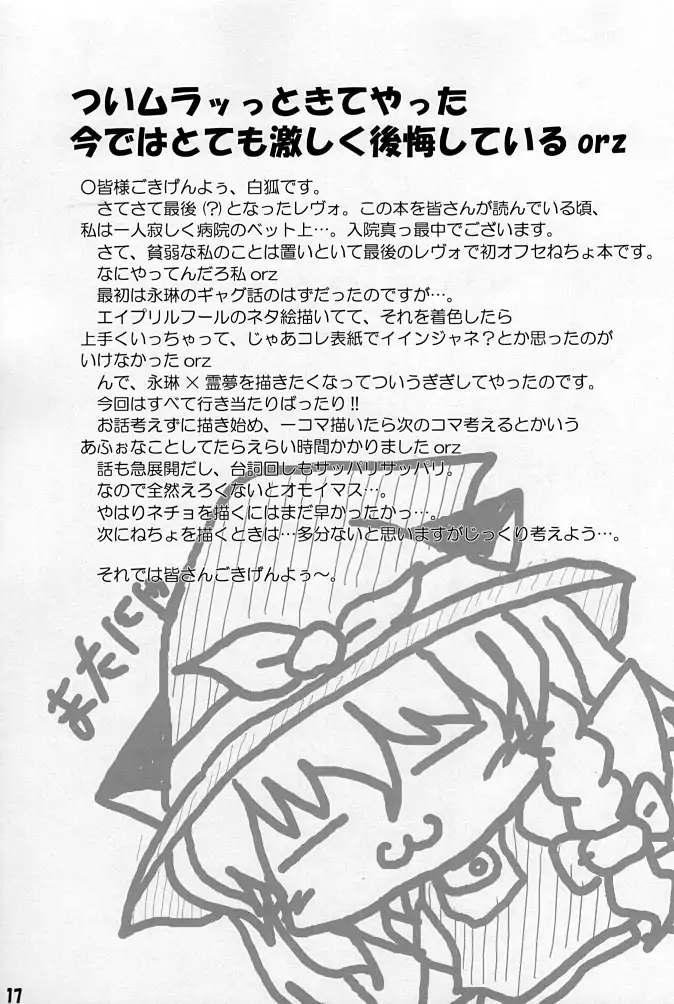 ついムラッっときてやった
今ではとても激しく後悔しているorz
○皆様ごきげんよぅ、白狐です。
さてさて最後(?)となったレヴォ。この本を皆さんが読んでいる頃、
私は一人寂しく病院のベット上…。入院真っ最中でございます。
さて、貧弱な私のことは置いといて最後のレヴォで初オフセねちょ本です。
なにやってんだろ私orz
最初は永琳のギャグ話のはずだったのですが…。
エイプリルフールのネタ絵描いてて、それを着色したら
上手くいっちゃって、じゃあコレ表紙でイインジャネ？とか思ったのが
いけなかったorz
んで、永琳×霊夢を描きたくなってついうぎぎしてやったのです。
今回はすべて行き当たりばったり!!
お話考えずに描き始め、一コマ描いたら次のコマ考えるとかいう
あふぉなことしてたらえらい時間かかりましたorz
話も急展開だし、台詞回しもサッパリサッパリ。
なので全然えろくないとオモイマス…。
やはりネチョを描くにはまだ早かったかっ…。
次にねちょを描くときは…多分ないと思いますがじっくり考えよう…。
それでは皆さんごきげんよぅ～。
またに
17